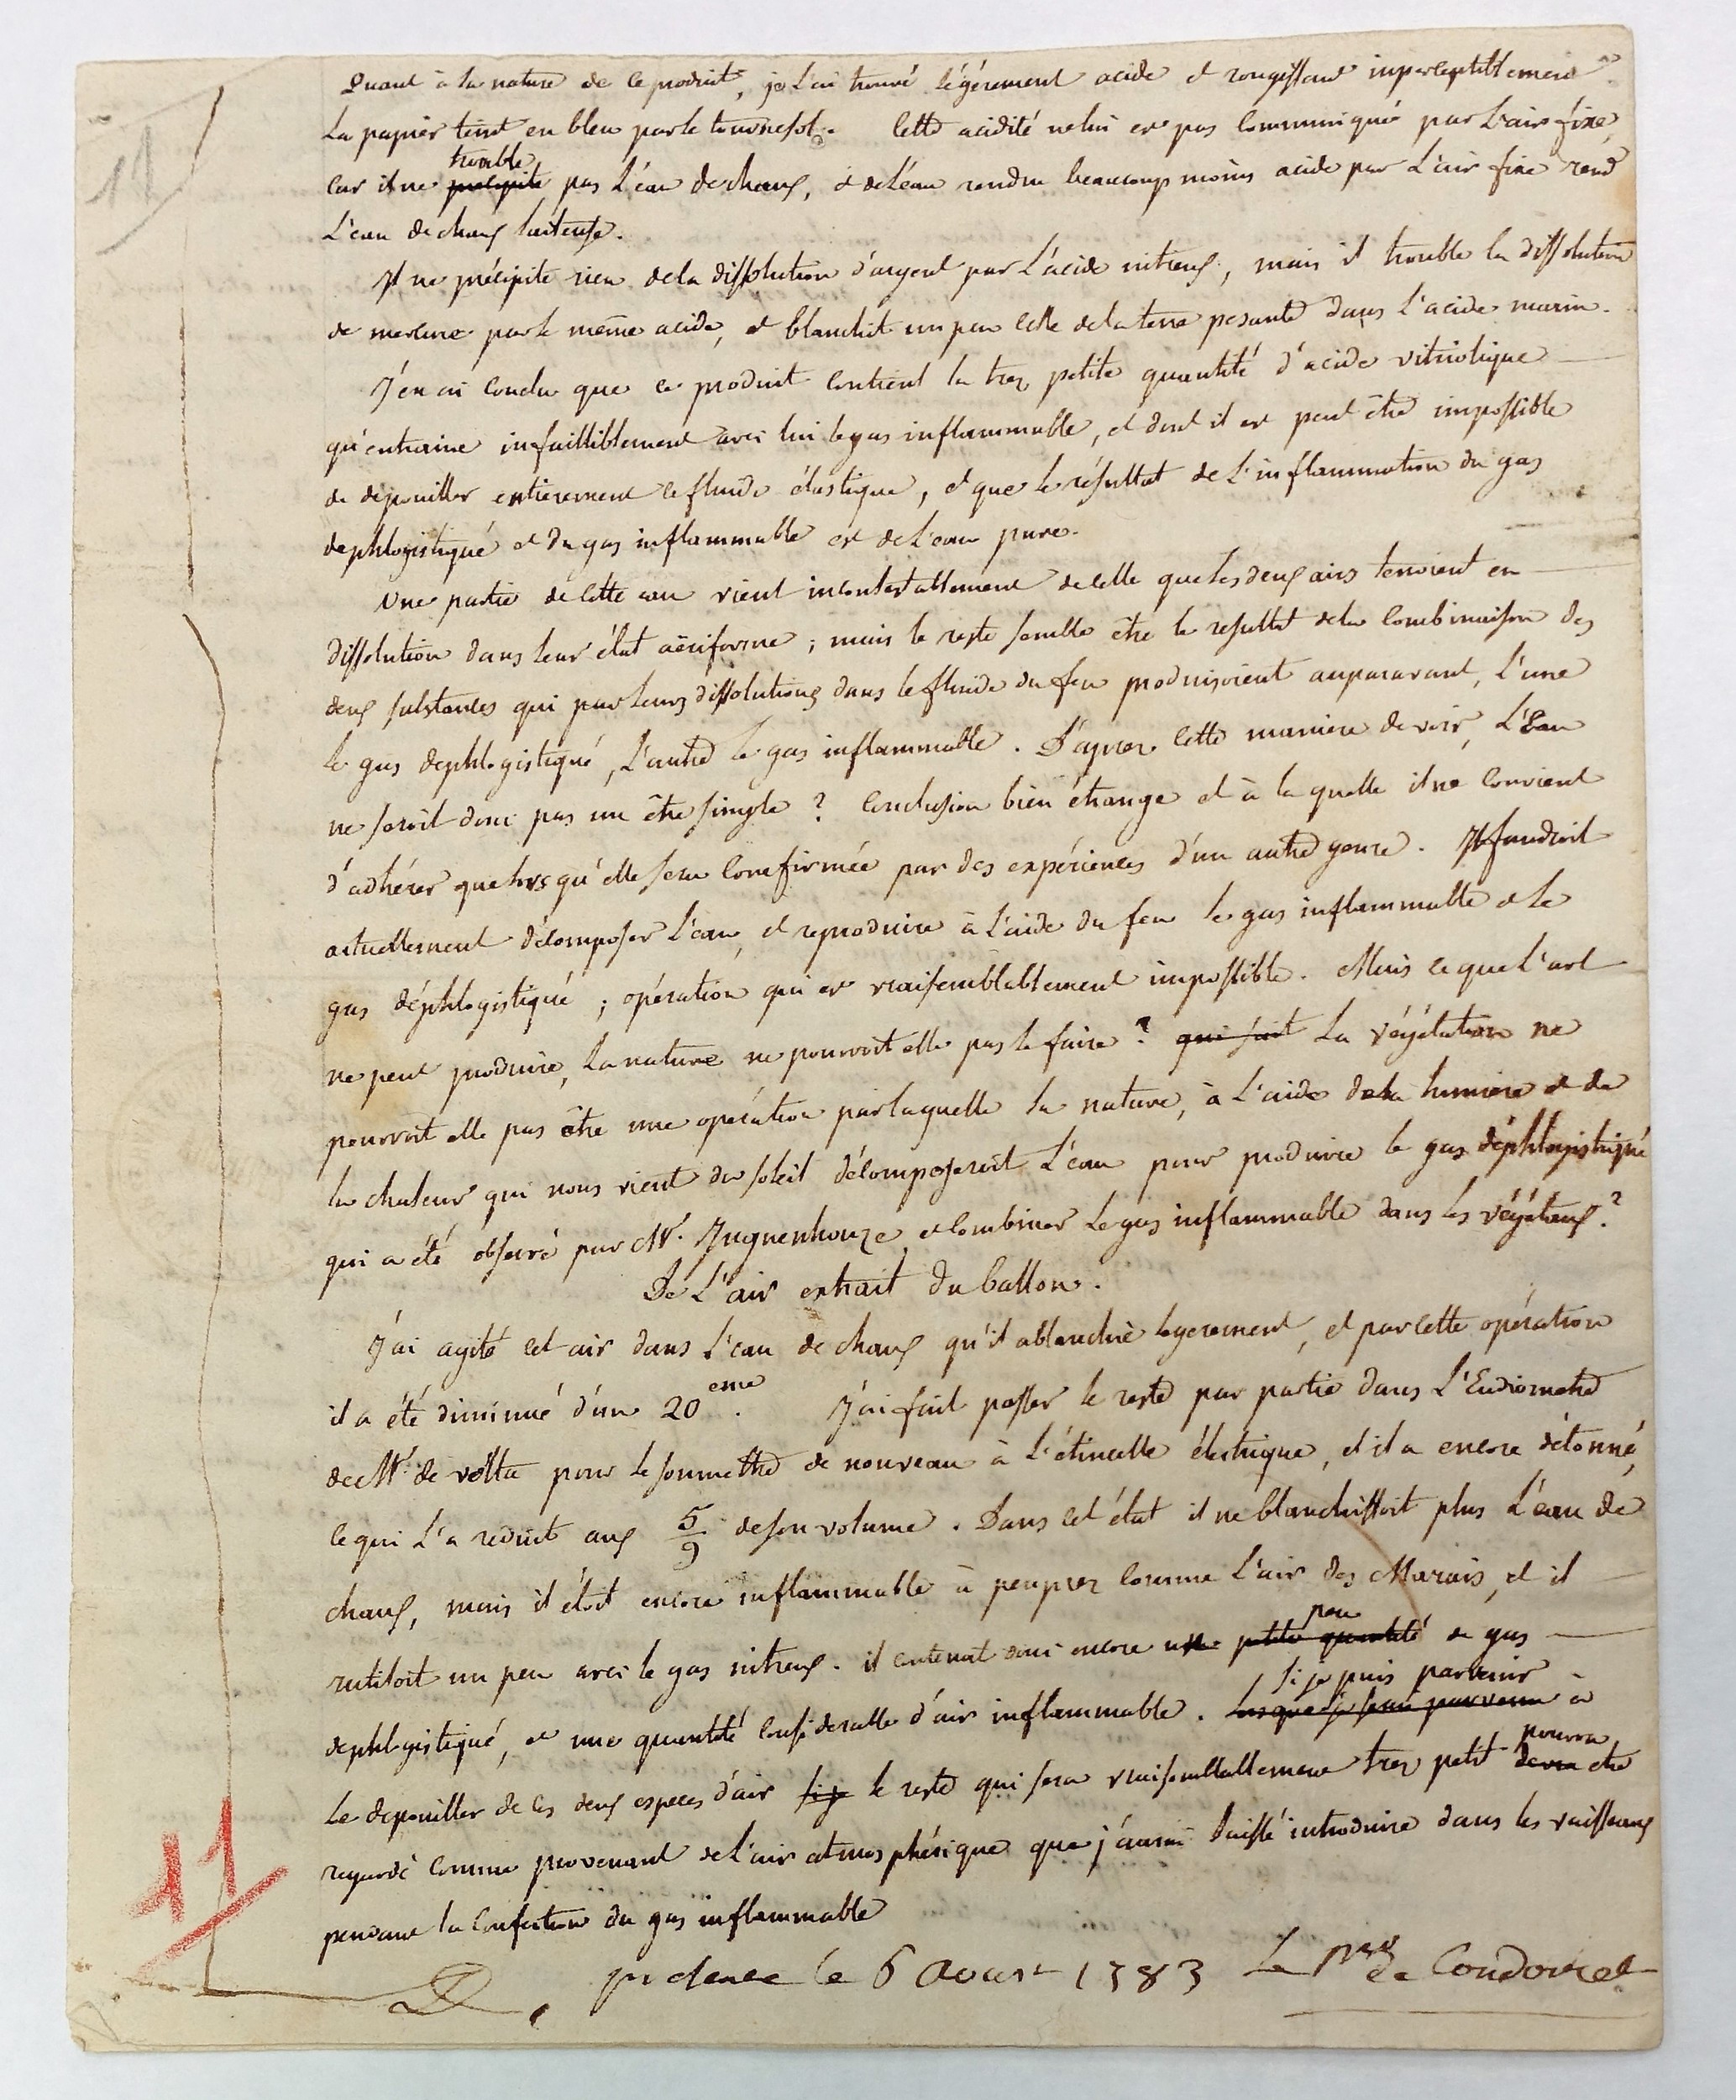 11
Quant à la nature de ce produit, je l'ai trouvé légérement acide et rougissant imperceptiblement
le papier teint en bleu par le tournesol. Cette acidité ne lui est pas communiquée par l'air fixe,
trouble
car il ne précipite pas l'eau de chaux, et de l'eau rendue beaucoup moins acide par l'air fixe rend
l'eau de chaux laiteuse.
Il ne précipite rien de la dissolution d'argent par l'acide nitreux, mais il trouble la dissolution
de mercure par le même acide, et blanchit un peu celle de la terre pesante dans l'acide marin.
J'en ai conclu que ce produit contient la trez petite quantité d'acide vitriolique
qu'entraine infailliblement avec lui le gas inflammable, et dont il est peut être impossible
de depouiller entierement ce fluide élastique, et que le résultat de l'inflammation du gas
dephlogistiqué et du gas inflammable est de l'eau pure.
Une partie de cette eau vient incontestablement de celle que les deux airs tenoient en
dissolution dans leur état aëriforme ; mais le reste semble être le resultat de la combinaison des
deux substances qui par leurs dissolutions dans le fluide du feu produisoient auparavant, l'une
le gas dephlogistiqué, l'autre le gas inflammable. D'aprez cette maniere de voir, l'Eau
ne seroit donc pas un être simple ? Conclusion bien étrange et à la quelle il ne convient
d'adhérer que lorsqu'elle sera confirmée par des expériences d'un autre genre. Il faudroit
actuellement décomposer l'eau, et reproduire à l'aide du feu le gas inflammable et le
gas déphlogistiqué ; opération qui est vraisemblablement impossible. Mais ce que l'art
ne peut produire, la nature ne pourroit elle pas le faire ? qui sait la végétation ne
pourroit elle pas être une opération par laquelle la nature, à l'aide de la lumiere et de
la chaleur qui nous vient du soleil décomposeroit l'eau pour produire le gas déphlogistiqué
qui a été observé par Mr. Inguenhouze, et combiner le gas inflammable dans les végétaux ?
De l'air extrait du ballon.
J'ai agité cet air dans l'eau de chaux qu'il a blanchie legerement, et par cette opération
il a été diminué d'un 20eme. J'ai fait passer le reste par partie dans l'Eudiometre
de Mr. de volta pour le soumettre de nouveau à l'étincelle électrique, et il a encore détonné,
ce qui l'a reduit aux 5/9 de son volume. Dans cet état il ne blanchissoit plus l'eau de
chaux, mais il étoit encore inflammable à peuprez comme l'air des Marais, et il
peu
rutiloit un peu avec le gas nitreux. il contenoit donc encore une petite quantité de gas
si je puis parvenir
dephlogistiqué, et une quantité considerable d'air inflammable. Lorsque je serai parvenu à
pourra
le depouiller de ces deux especes d'air si je le reste qui sera vraisemblablement trez petit devra etre
regardé comme provenant de l'air atmosphérique que j'aurai laissé introduire dans les vaisseaux
pendant la confection du gas inflammable
11
presenté le 6 Aoust 1783 Le Mis de Condorcet